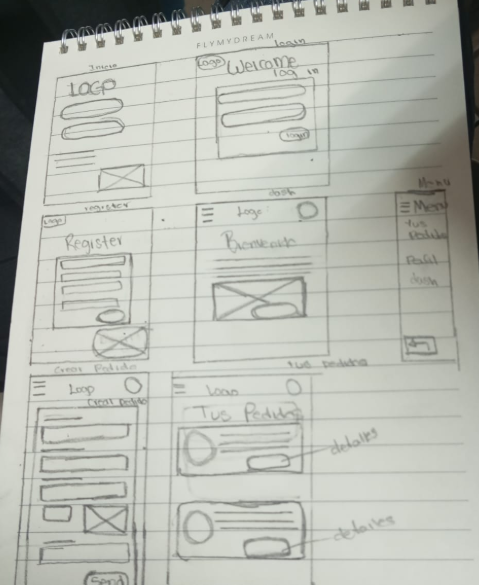 FLYMYDREAM
Inicio
LOGO
login
Logo
Welcome
log in
register
Logo
Register
dash
Logo
Bienvenido
Menu
Menu
tus
Pedidos
Perfil
dash
Crear Pedido
Logo
Crear Pedido
Send
tus pedidos
Logo
Tus Pedidos
detalles
detalles